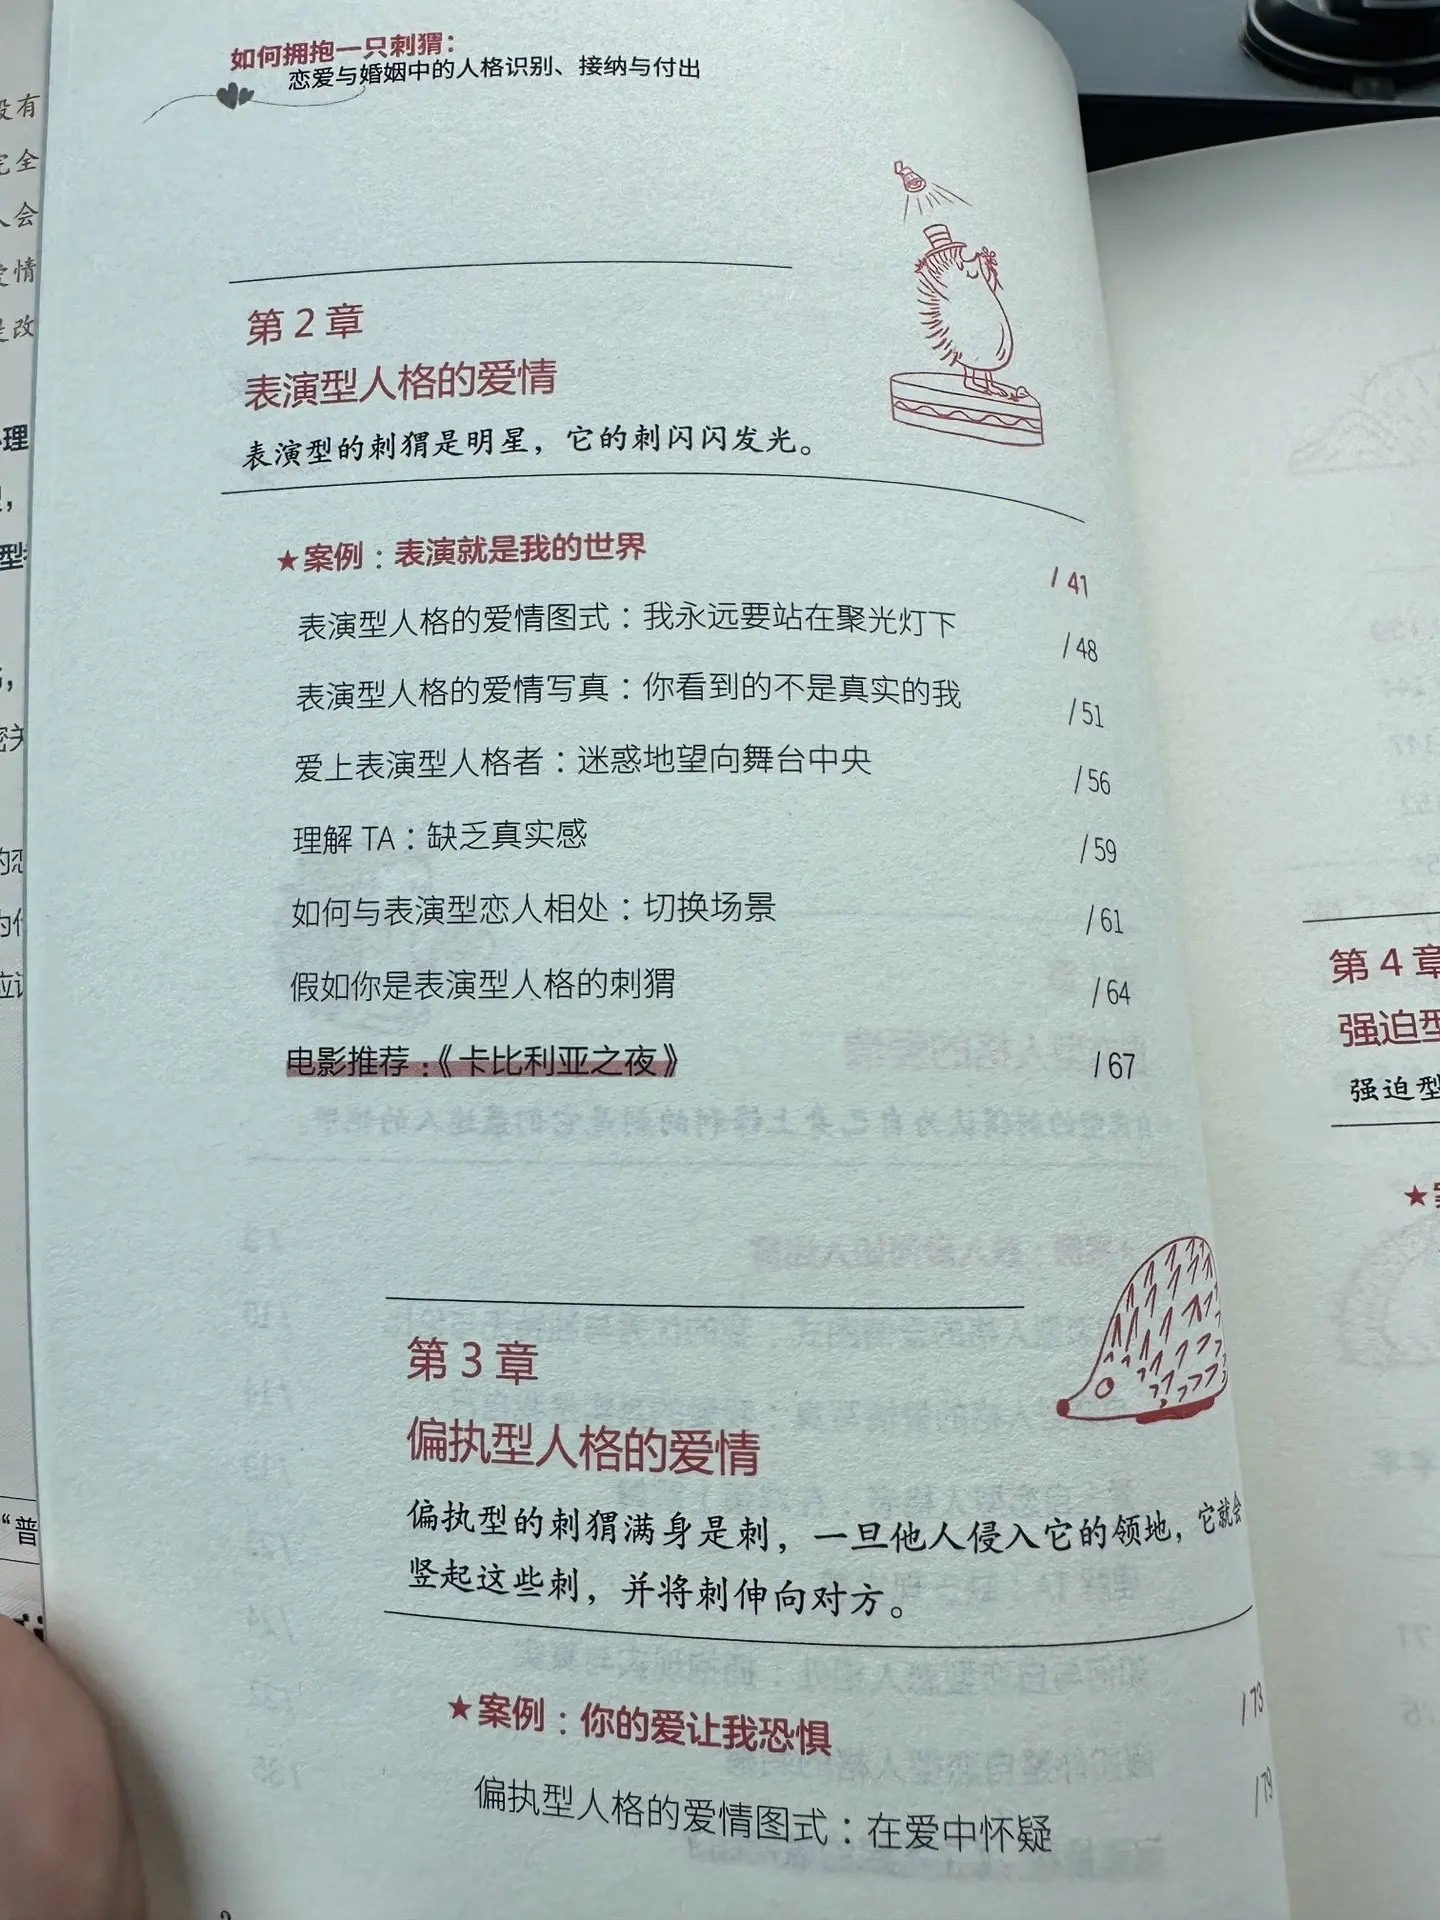 如何拥抱一只刺猬：
恋爱与婚姻中的人格识别、接纳与付出
第 2 章
表演型人格的爱情
表演型的刺猬是明星，它的刺闪闪发光。
★案例：表演就是我的世界 / 41
表演型人格的爱情图式：我永远要站在聚光灯下 / 48
表演型人格的爱情写真：你看到的不是真实的我 / 51
爱上表演型人格者：迷惑地望向舞台中央 / 56
理解 TA：缺乏真实感 / 59
如何与表演型恋人相处：切换场景 / 61
假如你是表演型人格的刺猬 / 64
电影推荐：《卡比利亚之夜》 / 67
第 3 章
偏执型人格的爱情
偏执型的刺猬满身是刺，一旦他人侵入它的领地，它就会
竖起这些刺，并将刺伸向对方。
★案例：你的爱让我恐惧 / 73
偏执型人格的爱情图式：在爱中怀疑 / 79
第 4 章
强迫型
强迫型
★